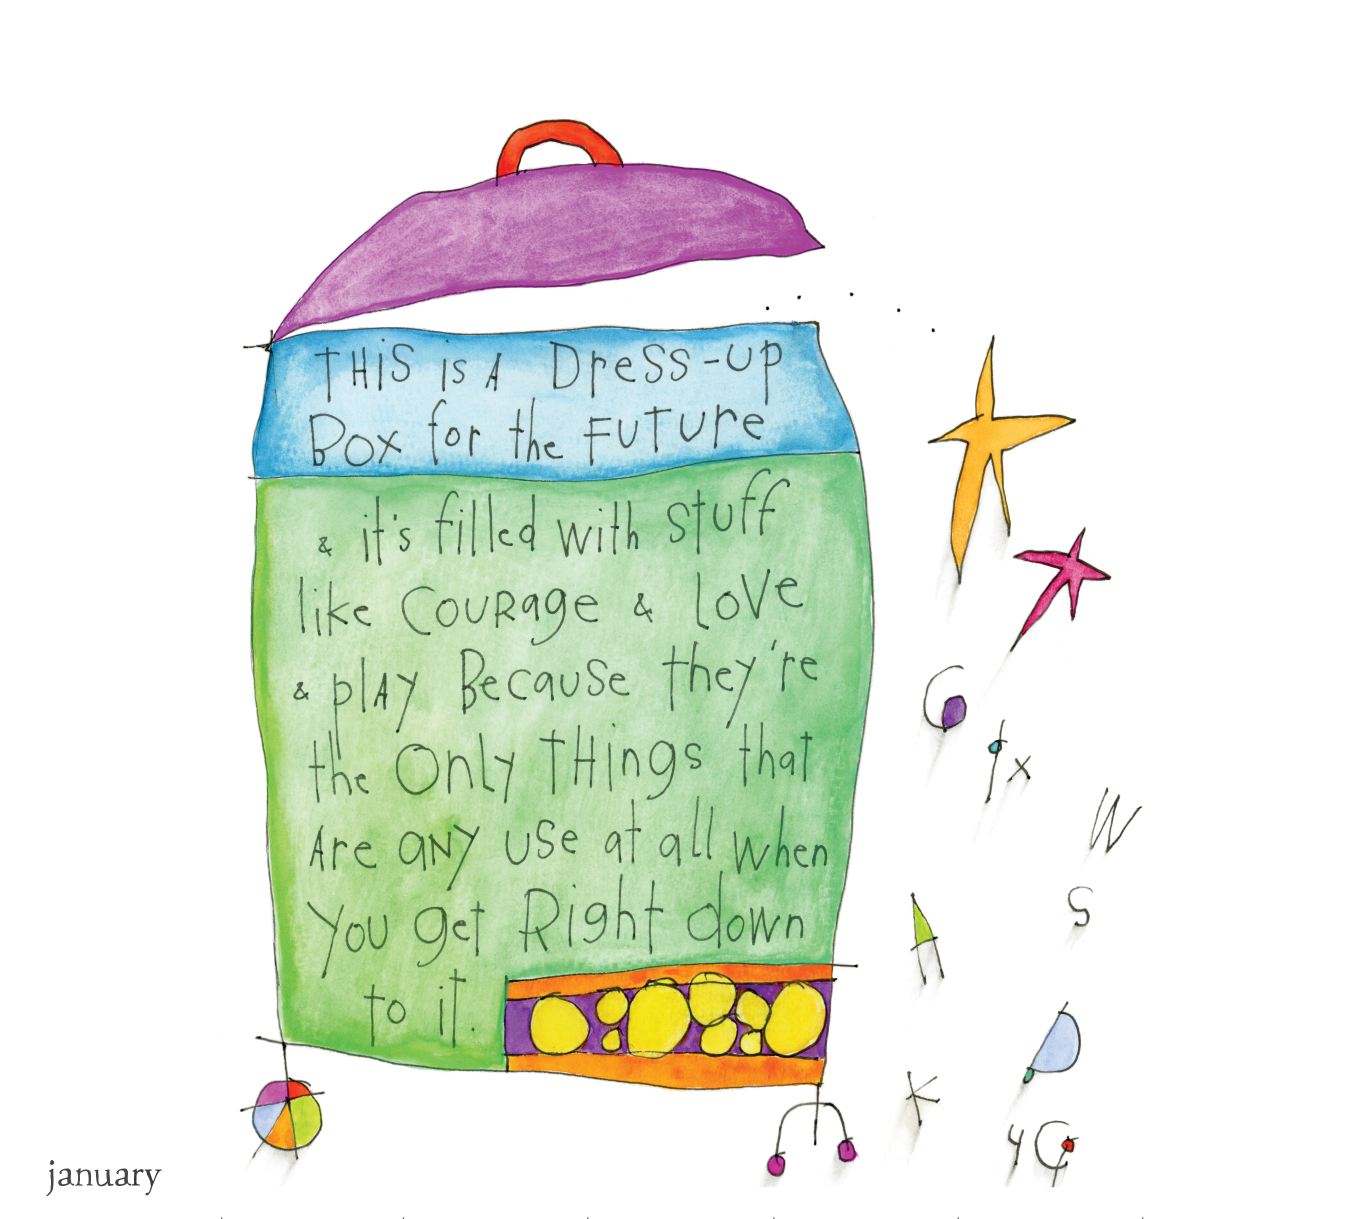 THiS is A Dress-up
Box for the FUTUre
& it's filled with stuff
like COURage & LoVe
& plAy Because they're
the Only THings that
Are aNy use at all when
you get Right down
to it.
x
W
S
y
january